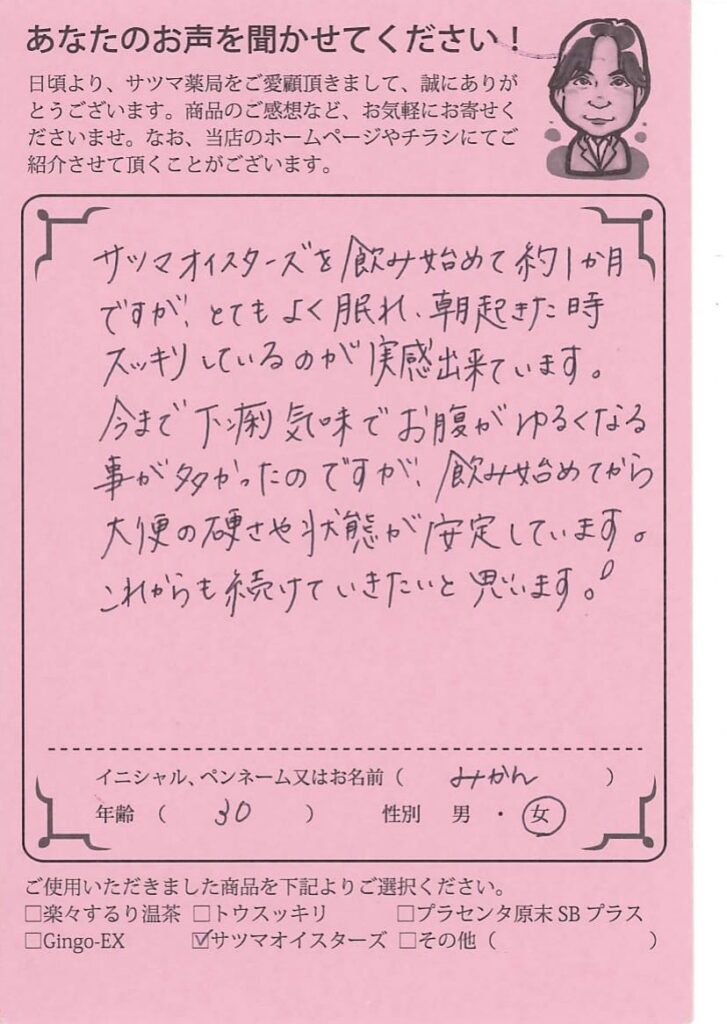 あなたのお声を聞かせてください！
日頃より、サツマ薬局をご愛顧頂きまして、誠にありが
とうございます。商品のご感想など、お気軽にお寄せく
ださいませ。なお、当店のホームページやチラシにてご
紹介させて頂くことがございます。
サツマオイスターズを飲み始めて約1か月
ですが、とてもよく眠れ、朝起きた時
スッキリしているのが実感出来ています。
今まで下痢気味でお腹がゆるくなる
事が多かったのですが、飲み始めてから
大便の硬さや状態が安定しています。
これからも続けていきたいと思います。
イニシャル、ペンネーム又はお名前（ みかん ）
年齢（ 30 ） 性別 男 ・ 女
ご使用いただきました商品を下記よりご選択ください。
□楽々するり温茶 □トウスッキリ □プラセンタ原末 SB プラス
□Gingo-EX ☑サツマオイスターズ □その他（ ）